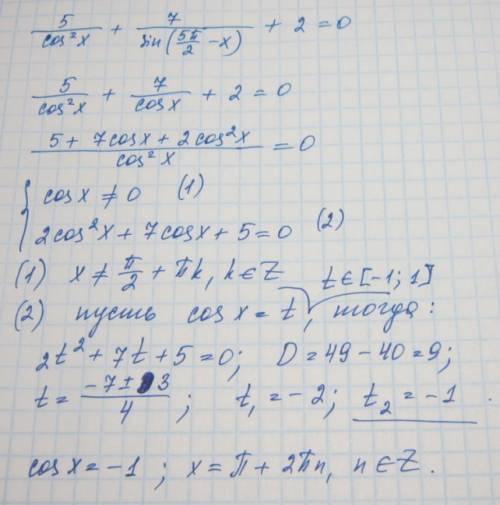 5/cos²x + 7/sin(5π/2 − x) + 2 = 0
5/cos²x + 7/cosx + 2 = 0
(5 + 7cosx + 2cos²x)/cos²x = 0
{ cosx ≠ 0 (1)
2cos²x + 7cosx + 5 = 0 (2)
(1) x ≠ π/2 + πk, k ∈ Z t ∈ [-1; 1]
(2) пусть cosx = t, тогда:
2t² + 7t + 5 = 0; D = 49 − 40 = 9;
t = (−7 ± 3)/4 ; t₁ = −2; t₂ = −1 .
cosx = −1 ; x = π + 2πn, n ∈ Z.